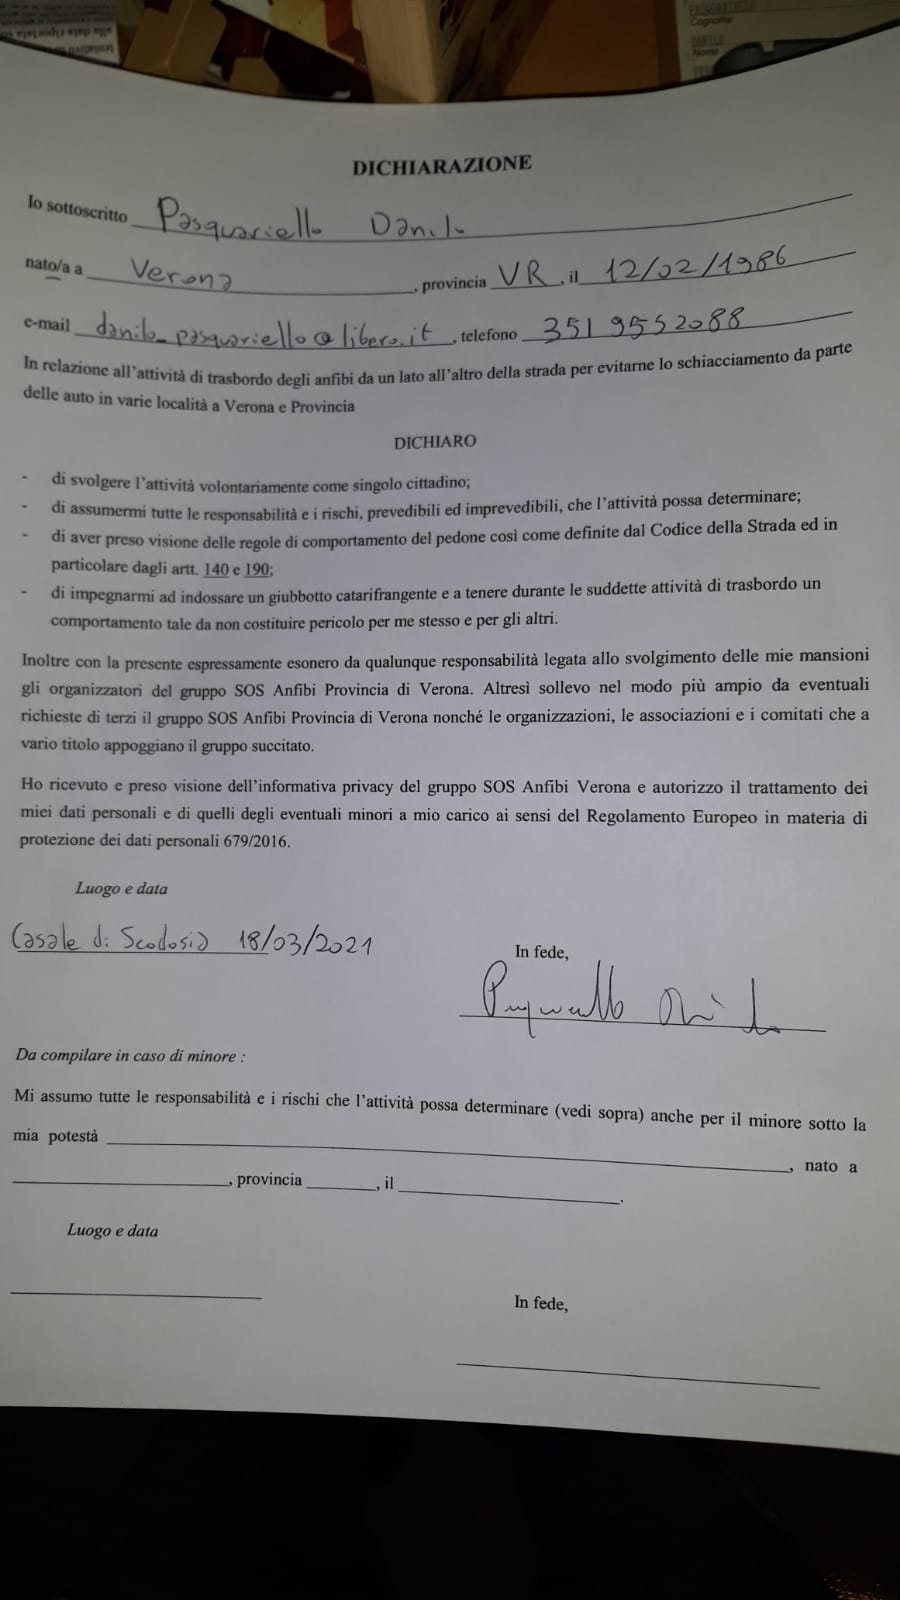 Cognome
Nome
DICHIARAZIONE
Io sottoscritto Pasquariello Danilo
nato/a a Verona, provincia VR, il 12/02/1986
e-mail danilo_pasquariello@libero.it, telefono 3519552088
In relazione all'attività di trasbordo degli anfibi da un lato all'altro della strada per evitarne lo schiacciamento da parte
delle auto in varie località a Verona e Provincia
DICHIARO
- di svolgere l'attività volontariamente come singolo cittadino;
- di assumermi tutte le responsabilità e i rischi, prevedibili ed imprevedibili, che l'attività possa determinare;
- di aver preso visione delle regole di comportamento del pedone così come definite dal Codice della Strada ed in
particolare dagli artt. 140 e 190;
- di impegnarmi ad indossare un giubbotto catarifrangente e a tenere durante le suddette attività di trasbordo un
comportamento tale da non costituire pericolo per me stesso e per gli altri.
Inoltre con la presente espressamente esonero da qualunque responsabilità legata allo svolgimento delle mie mansioni
gli organizzatori del gruppo SOS Anfibi Provincia di Verona. Altresì sollevo nel modo più ampio da eventuali
richieste di terzi il gruppo SOS Anfibi Provincia di Verona nonché le organizzazioni, le associazioni e i comitati che a
vario titolo appoggiano il gruppo succitato.
Ho ricevuto e preso visione dell'informativa privacy del gruppo SOS Anfibi Verona e autorizzo il trattamento dei
miei dati personali e di quelli degli eventuali minori a mio carico ai sensi del Regolamento Europeo in materia di
protezione dei dati personali 679/2016.
Luogo e data
Casale di Scodosia 18/03/2021
In fede,
Da compilare in caso di minore :
Mi assumo tutte le responsabilità e i rischi che l'attività possa determinare (vedi sopra) anche per il minore sotto la
mia potestà , nato a
, provincia , il .
Luogo e data
In fede,